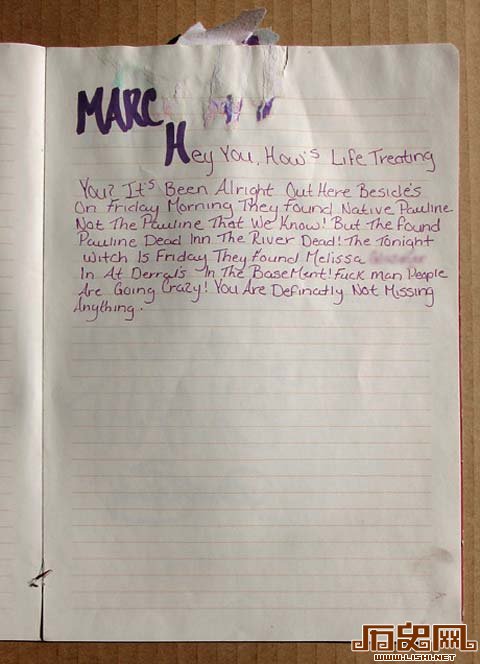 MARC
Hey You, How's Life Treating
You? It's Been Alright Out Here Beside's
On Friday Morning They Found Native Pauline
Not The Pauline That We Know! But The Found
Pauline Dead Inn The River Dead! The Tonight
witch Is Friday They Found Melissa
In At Derral's In The Basement! Fuck man People
Are Going Crazy! You Are Definatly Not Missing
Anything.
历史网
WWW.LISHI.NET